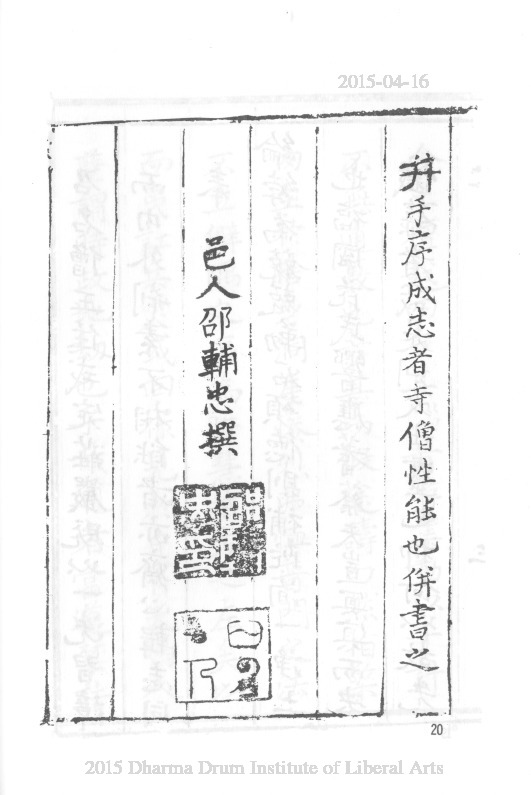 2015-04-16
并手序成志者寺僧性能也併書之
邑人邵輔忠撰
邵輔忠印
20
2015 Dharma Drum Institute of Liberal Arts